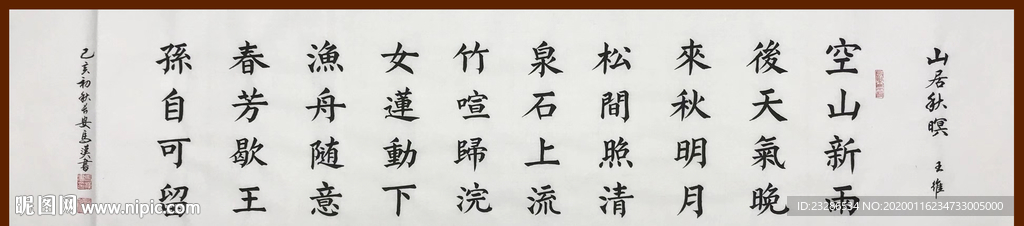 山居秋暝 王維
空山新雨
後天氣晚
來秋明月
松間照清
泉石上流
竹喧歸浣
女蓮動下
漁舟随意
春芳歇王
孫自可留
己亥初秋
書
昵图网 www.nipic.com
ID:23286534 NO:20200116234733005000